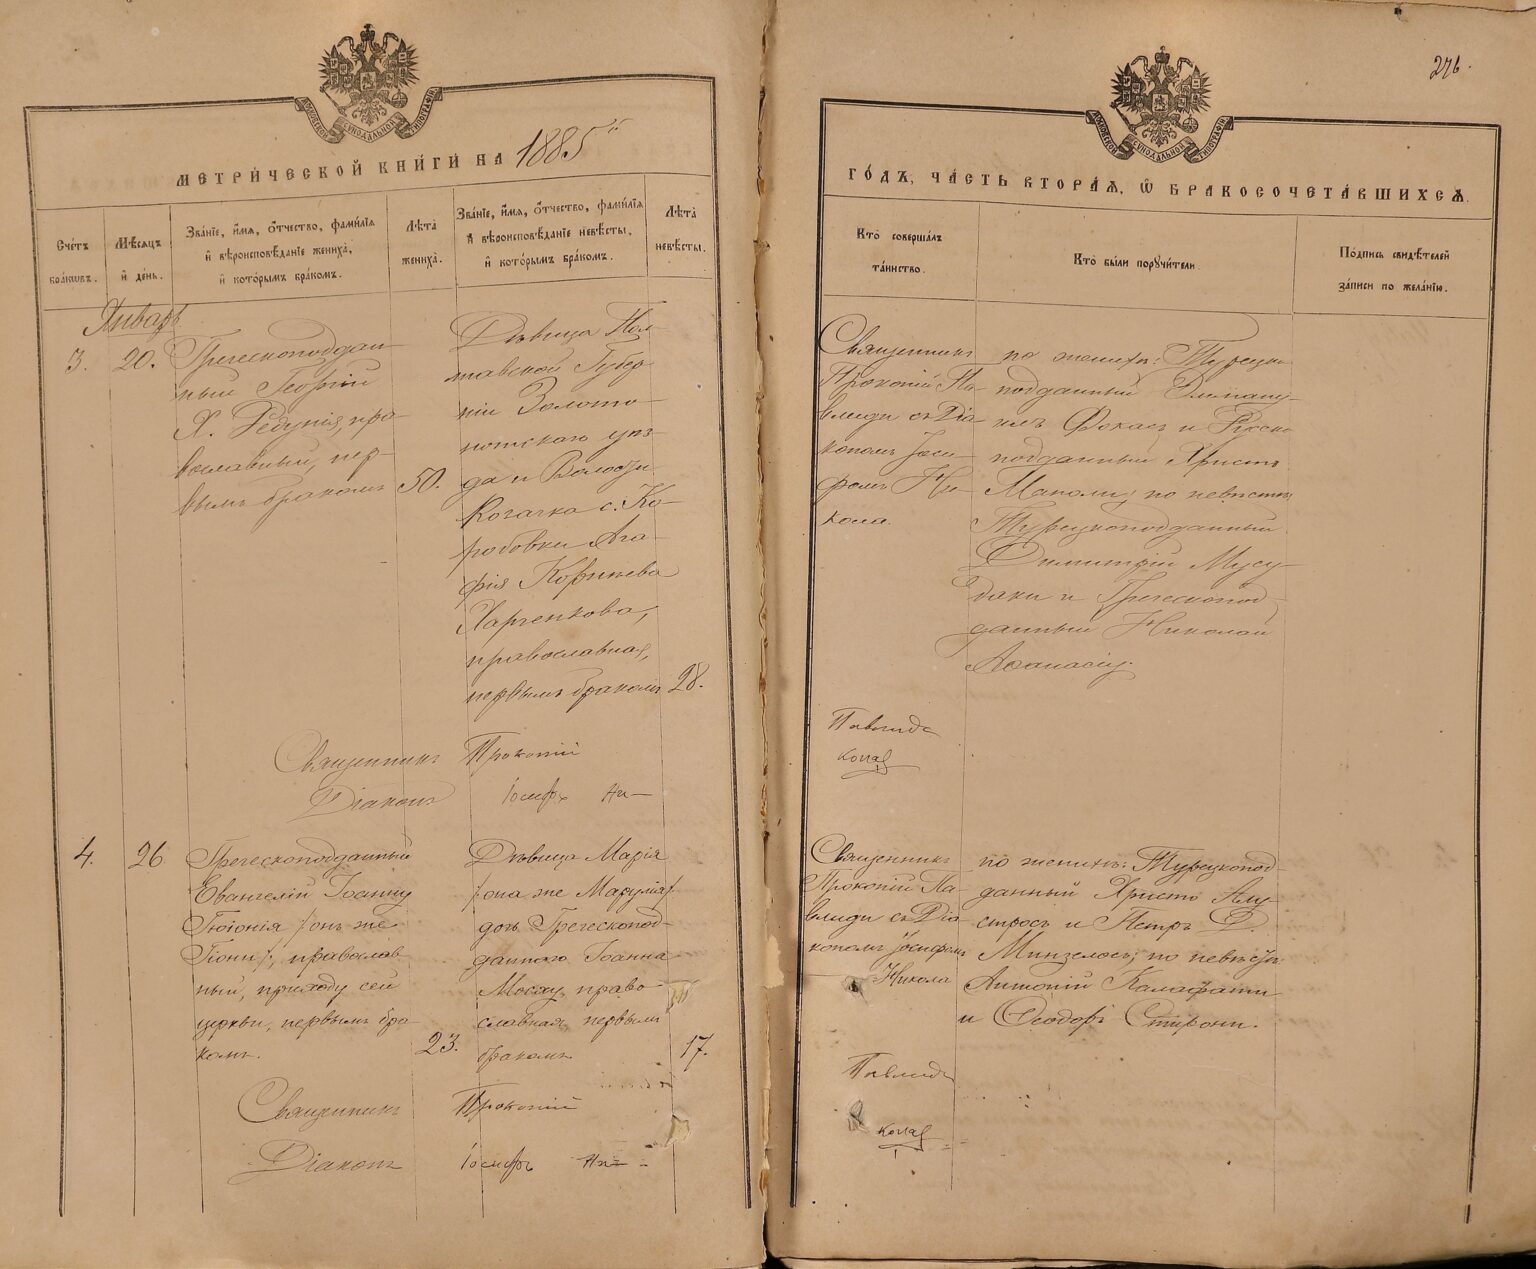 МЕТРИ́ЧЕСКОЙ КНИ́ГИ НА 1885й
Сче́тъ браковъ.
Мѣсяцъ и день.
Зва́нїе, и́мя, о́тчество, фами́лїя
и вѣроисповѣ́данїе жениха̀,
и кото́рымъ бра́комъ.
Лѣта̀ жениха̀.
Зва́нїе, и́мя, о́тчество, фами́лїя
и вѣроисповѣ́данїе невѣ́сты,
и кото́рымъ бра́комъ.
Лѣта̀ невѣ́сты.
Январь
3.
20.
Греческоподдан-
ный Георгій
Х. Редунія, пра-
вославный, пер-
вымъ бракомъ
50.
Дѣвица Пол-
тавской Губер-
ніи Золото-
ношскаго уѣз-
да и Волости
с. Ко-
робовки Ага-
фія Корнѣева
Харченкова,
православная,
первымъ бракомъ
28.
Священникъ Прокопій
Діаконъ Іосифъ Ни-
4.
26
Греческоподданный
Евангелій Іоанну
/онъ же
Гіони/, православ-
ный, приходу сей
церкви, первымъ бра-
комъ.
23.
Дѣвица Марія
/она же Марулія/
дочь Греческопод-
даннаго Іоанна
право-
славная, первымъ
бракомъ.
17.
Священникъ Прокопій
Діаконъ Іосифъ Ни-
246.
ГО́ДЪ, ЧА́СТЬ ВТОРА́Я, Ѿ БРАКОСОЧЕТА́ВШИХСЯ.
Кто̀ соверша́лъ
та́инство.
Кто̀ бы́ли пору́чители.
По́дпись свидѣ́телей
за́писи по жела́нїю.
Священникъ
Прокопій Па-
влиди съ Діа-
кономъ Іоси-
фомъ Ни-
кола.
по женихѣ: Турецко-
подданный Эмману-
илъ Фокасъ и Русско
подданный Христъ
Маполи; по невѣстѣ
Турецкоподданный
Димитрій Мусу-
даки и Греческопод-
данный Николай
Аѳанасіу.
Павлиди
кола
Священникъ
Прокопій Па-
влиди съ Діа-
кономъ Іосифомъ
Никола
по женихѣ: Турецкопод-
данный Христо Алу-
стросъ и Петръ Д.
Минзелосъ; по невѣстѣ:
Антоній Калафати
и Ѳеодоръ Спирони.
Павлиди
кола